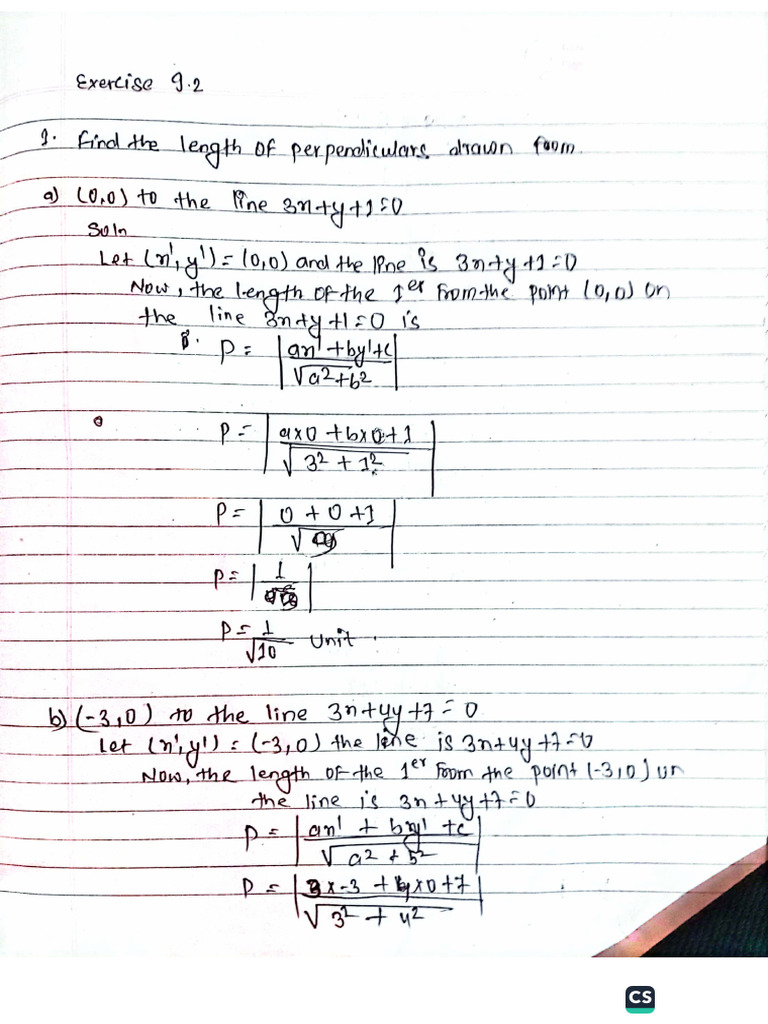 Exercise 9.2
1. Find the length of perpendiculars drawn from
a) (0,0) to the line 3x+y+1=0
Soln
Let (x', y') = (0,0) and the line is 3x+y+1=0
Now, the length of the ⊥er from the point (0,0) on
the line 3x+y+1=0 is
P = |ax'+by'+c / √a²+b²|
P = |a×0 + b×0+1 / √3² + 1²|
P = |0 + 0 + 1 / √|
P = |1 / |
P = 1/√10 unit.
b) (-3,0) to the line 3x+4y+7=0
Let (x', y') = (-3,0) the line is 3x+4y+7=0
Now, the length of the ⊥er from the point (-3,0) on
the line is 3x+4y+7=0
P = |ax' + by' + c / √a² + b²|
P = |3×-3 + 4×0+7 / √3² + 4²|
CS